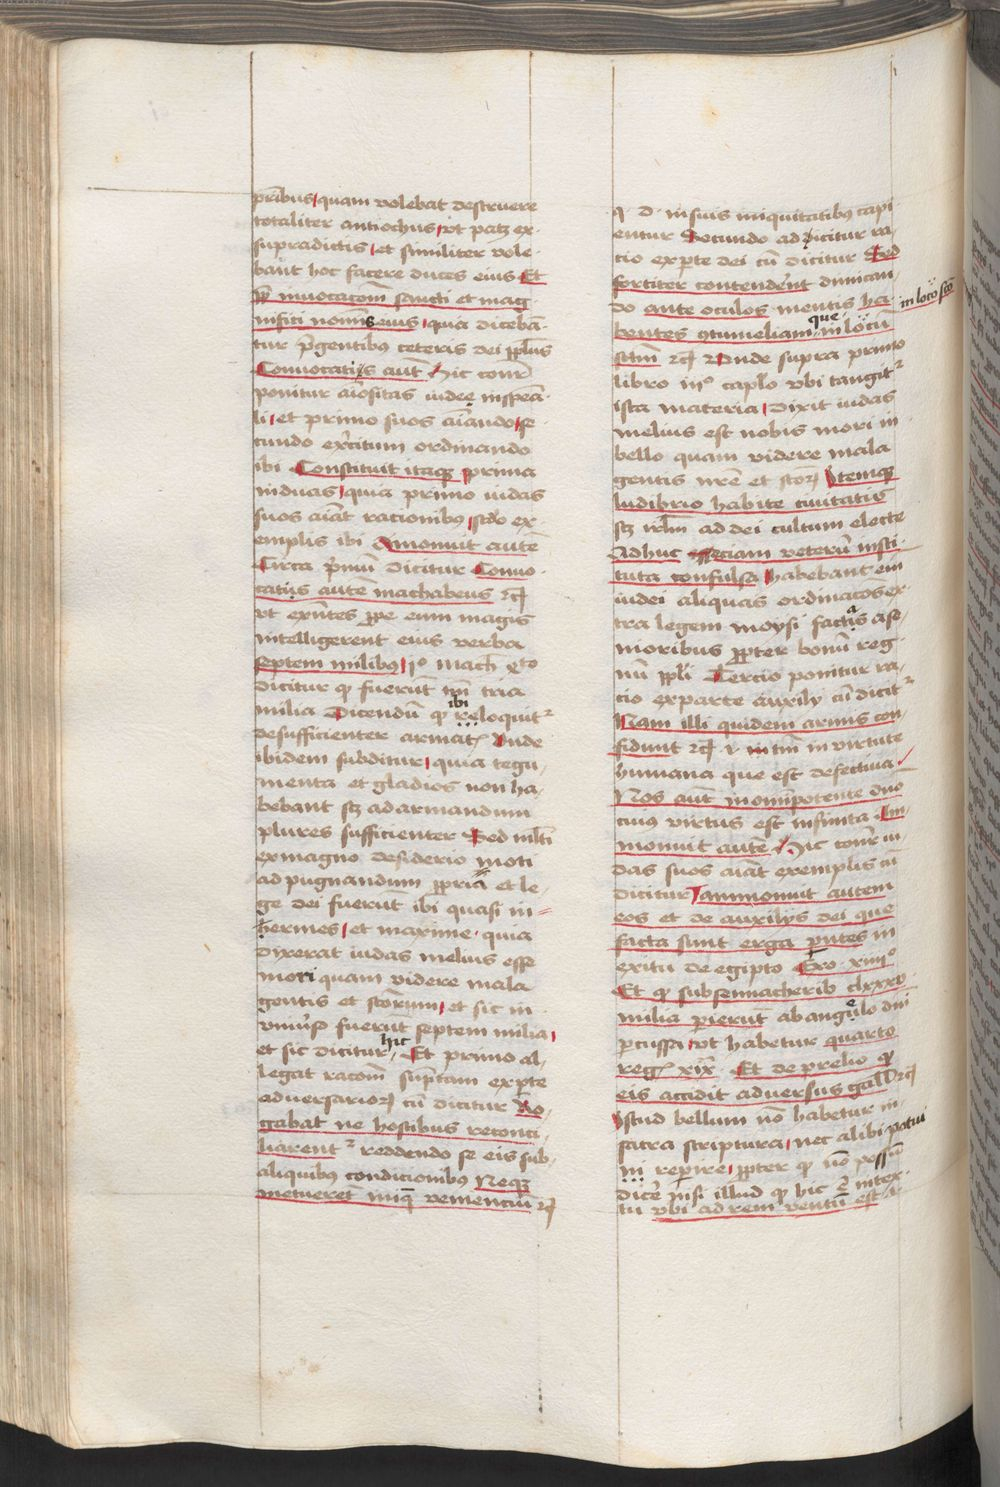 pribus quam volebat destruere
totaliter antiochus ut patz ex
supradictis et similiter vole
bant hoc facere duces eius Et
invocacom̄ sancti et mag
nifici nominis eius quia diceban̄
tur p̄ gentibus ceteris dei pp̄lus
Convocatus aut̄ hic
ponitur aīositas iudee in spēa
li et primo suos aīando se
cundo exercitum ordinando
ibi Constituit itaqꝫ prima
in duas quia primo iudas
suos aīat racionibus sc̄do ex
emplis ibi Amonuit autē
Circa p̄mū dicitur Convo
catus autē machabeus ⁊cꝫ
ut exn̄tes ꝓpe eum magis
intelligerent eius verba
septem milibus p̊ mach̄ qͬto
dicitur qͩ fuerūt tria
milia Dicendū qͩ ibi loquitͬ
de sufficienter armatis Unde
ibidem subditur quia tegu
menta et gladios non ha
bebant sꝫ ad armandum
plures sufficienter Sed mlti
ex magno desiderio moti
ad pugnandum ꝓpria et le
ge dei fuerūt ibi quasi in
hermes et maxime quia
dixerat iudas melius esse
mori quam videre mala
gentis et sc̄torum et sic in
universo fuerūt septem milia
et sic dicitur hic Et primo al
legat racom̄ sūptam ex p̱te
adversarioꝝ cū dicitur Ro
gabat ne hostibus reconci
liarentͬ reddendo se eis sub
aliquibus condicionibus Neqꝫ
metueret iniqꝫ veniencium ⁊cꝫ
q d in suis iniquitatibus capi
entur Secundo ad dicitur ra
cio ex p̱te dei cū dicitur Sed
fortiter contenderent dimican
do ante oculos mentis ha
bentes ꝯtumeliam que in locū
in loco sc̄o
sc̄tm̄ ⁊cꝫ Unde supra primo
libro iiiͦ caplo ubi tangitͬ
ista materia dixit iudas
melius est nobis mori in
bello quam videre mala
gentis nr̄e et sc̄toꝝ Itemqꝫ
ludibrio habite civitatis
sꝫ irl̄m ad dei cultum electe
Adhuc eciam veterū insti
tuta confulsa habebant eīn
iudei aliquas ordinacōes ex
tra legem moysi factas a se
moribus ꝓpter bonū reg
nū pp̄li Tercio ponitur ra
cio ex parte auxilii cū dicitͬ
Nam illi quidem armis con
fidunt ⁊cꝫ in virtute
humana que est defectiva
Nos aut̄ in omipotente dn̄o
cuius virtus est infinita Am
monuit autē Hic iu
das suos aīat exemplis cū
dicitur Ammonuit autem
eos et de auxiliis dei que
facta sunt erga parentes in
exitu de egipto Exo xiiiiͦ
Et qͩ sub sennacherib clxxxv
milia perierūt ab angelo dn̄i
p̱cussa ut habetur quarto
regꝫ xix Et de prelio qͩ
eis accidit adversus gall̄ ⁊cꝫ
Istud bellum nō habetur in
sacra scriptura nec alibi potui
reperire ꝓpter qͩ nō possū
dicere nisi illud qͩ hic ē in tex
tu ubi ad rem ventū est